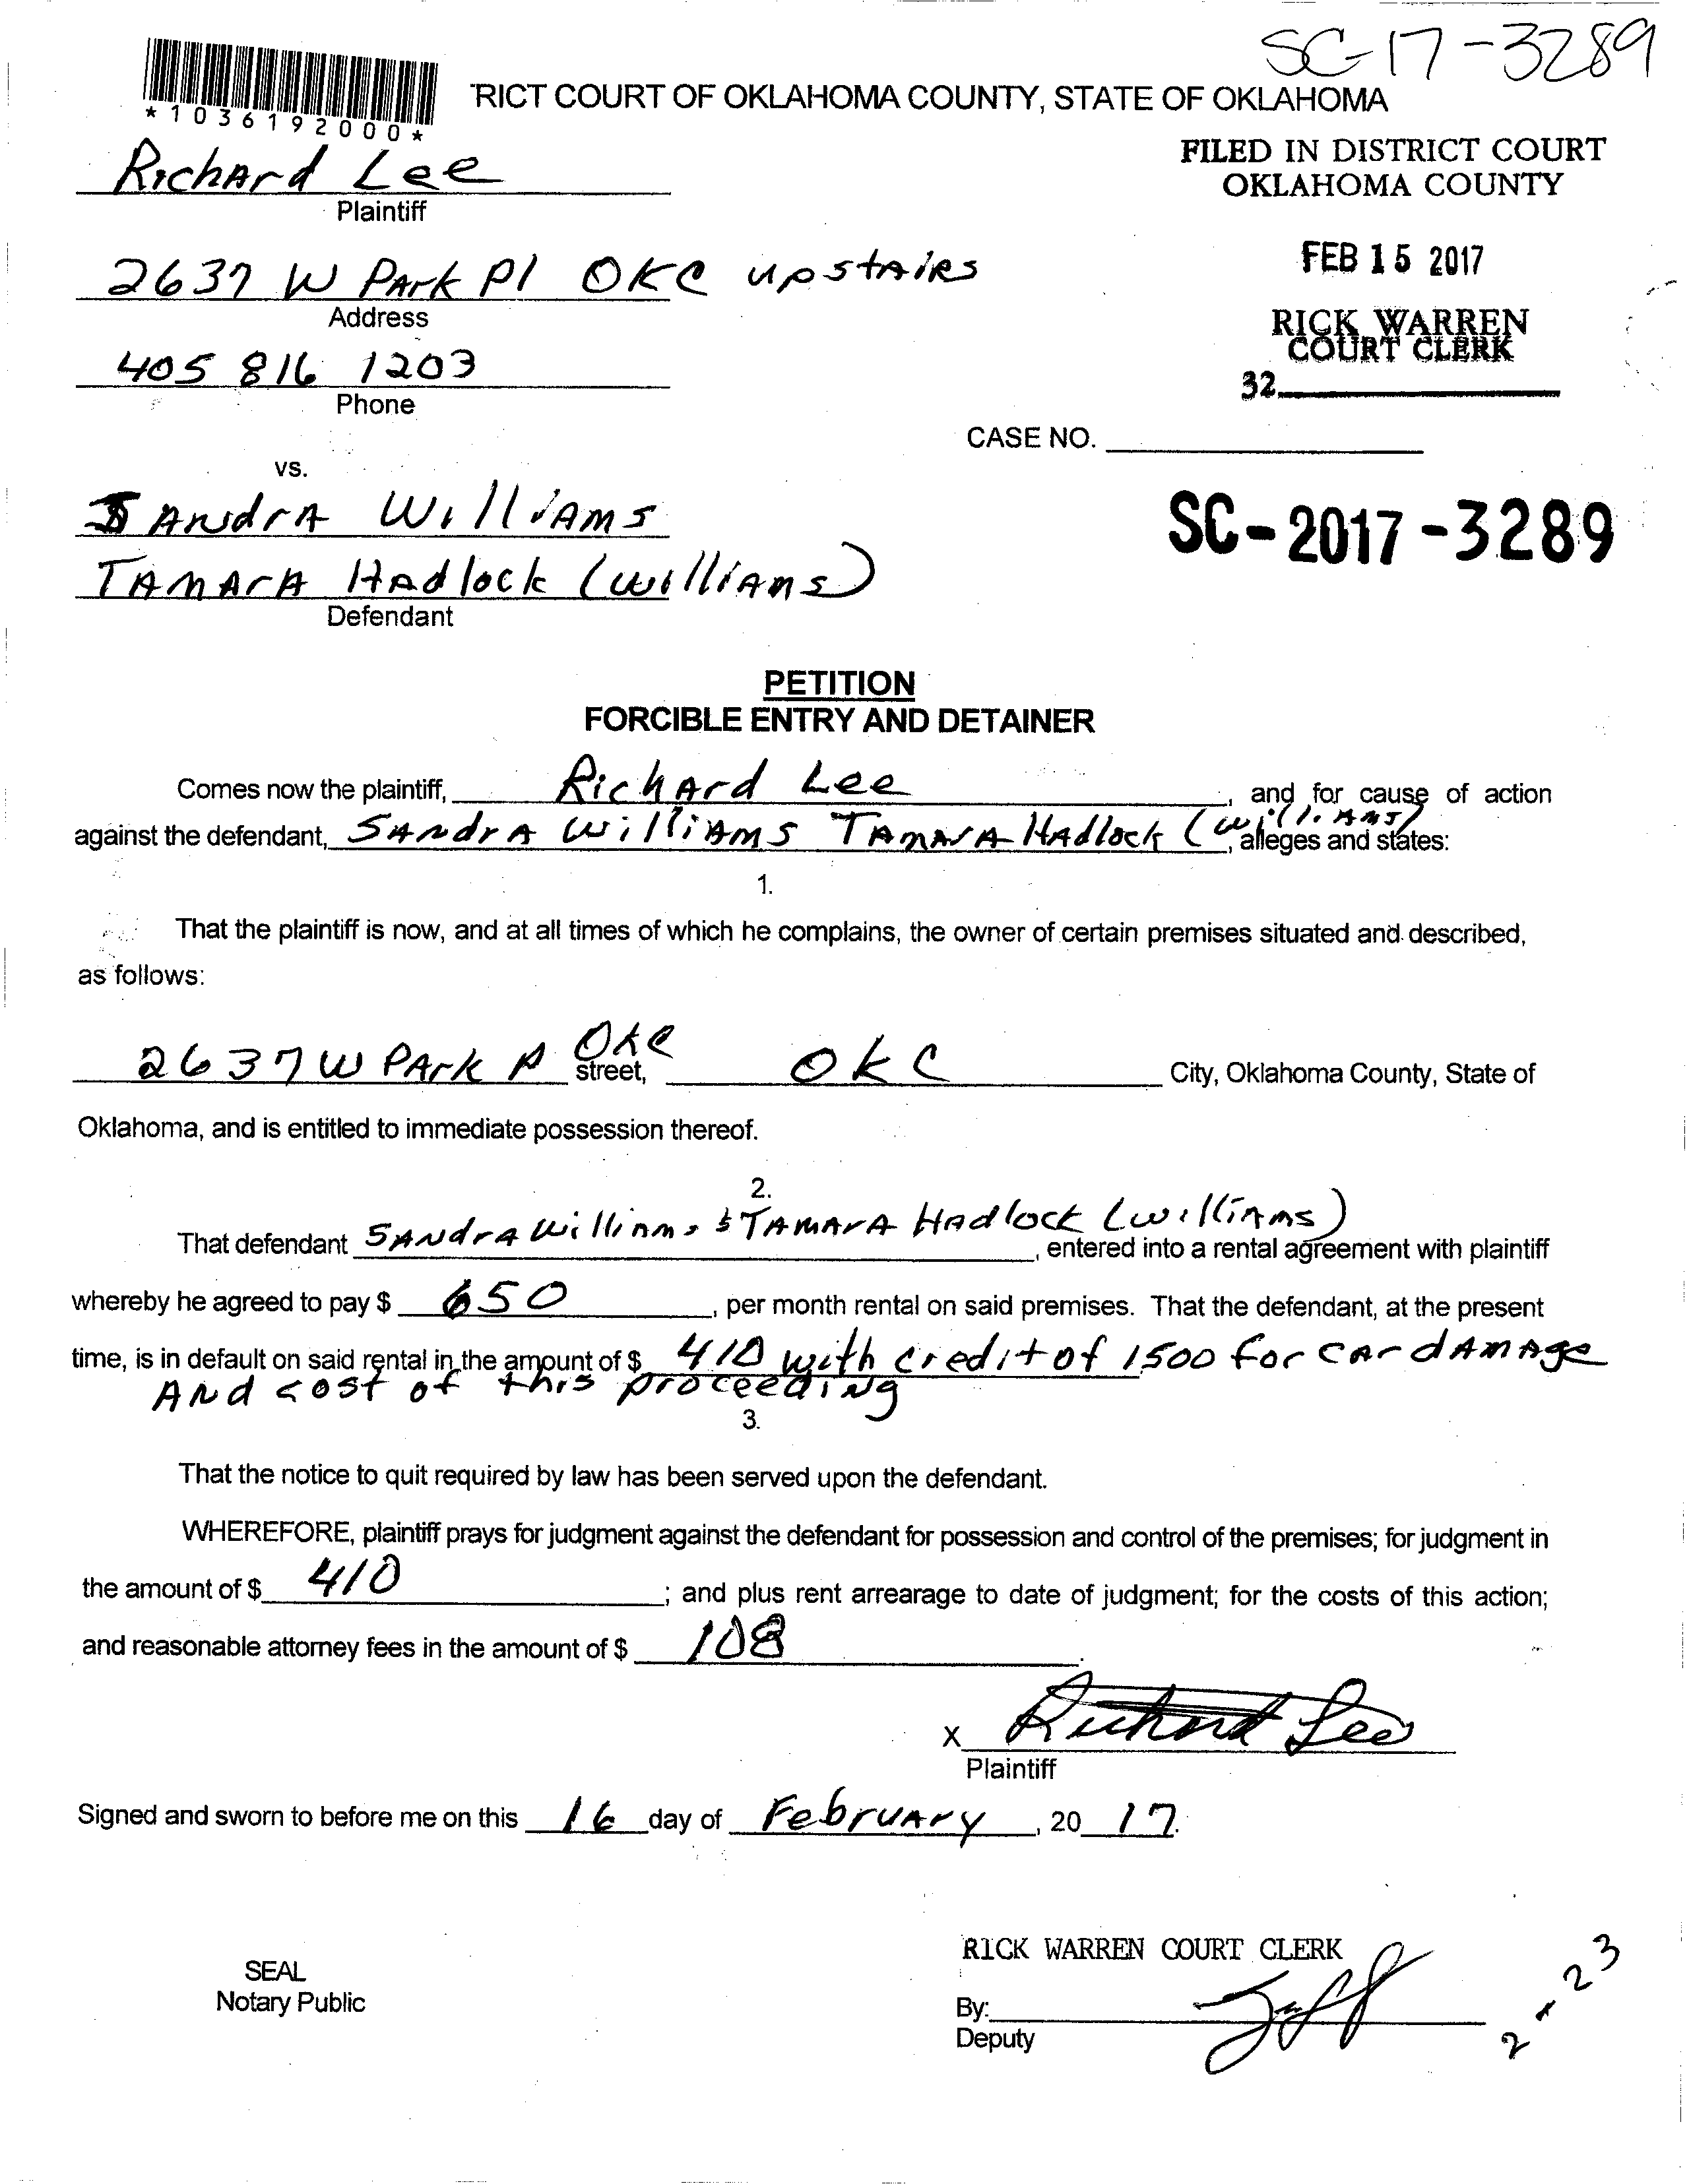 SC-17-3289
*1036192000*
RICT COURT OF OKLAHOMA COUNTY, STATE OF OKLAHOMA
FILED IN DISTRICT COURT
OKLAHOMA COUNTY
Richard Lee
Plaintiff
FEB 15 2017
2637 W Park Pl OKC upstairs
Address
RICK WARREN
COURT CLERK
32
405 816 1203
Phone
CASE NO.
vs.
Sandra Williams
SC-2017-3289
Tamara Hadlock (Williams)
Defendant
PETITION
FORCIBLE ENTRY AND DETAINER
Comes now the plaintiff, Richard Lee, and for cause of action
against the defendant, Sandra Williams Tamara Hadlock (Williams), alleges and states:
1.
That the plaintiff is now, and at all times of which he complains, the owner of certain premises situated and described,
as follows:
2637 W Park Pl OKC street, OKC City, Oklahoma County, State of
Oklahoma, and is entitled to immediate possession thereof.
2.
That defendant Sandra Williams & Tamara Hadlock (Williams), entered into a rental agreement with plaintiff
whereby he agreed to pay $ 650, per month rental on said premises. That the defendant, at the present
time, is in default on said rental in the amount of $ 410 with credit of 1500 for car damage
And cost of this proceeding
3.
That the notice to quit required by law has been served upon the defendant.
WHEREFORE, plaintiff prays for judgment against the defendant for possession and control of the premises; for judgment in
the amount of $ 410; and plus rent arrearage to date of judgment; for the costs of this action;
and reasonable attorney fees in the amount of $ 108.
X Richard Lee
Plaintiff
Signed and sworn to before me on this 16 day of February, 20 17.
RICK WARREN COURT CLERK
SEAL
Notary Public
By:
Deputy
2-23